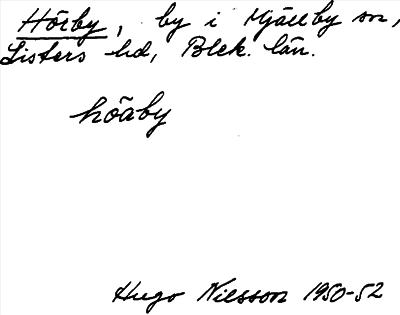 Hörby, by i Mjällby sn,
Listers hd, Blek. län.
hö̃aby
Hugo Nilsson 1950-52